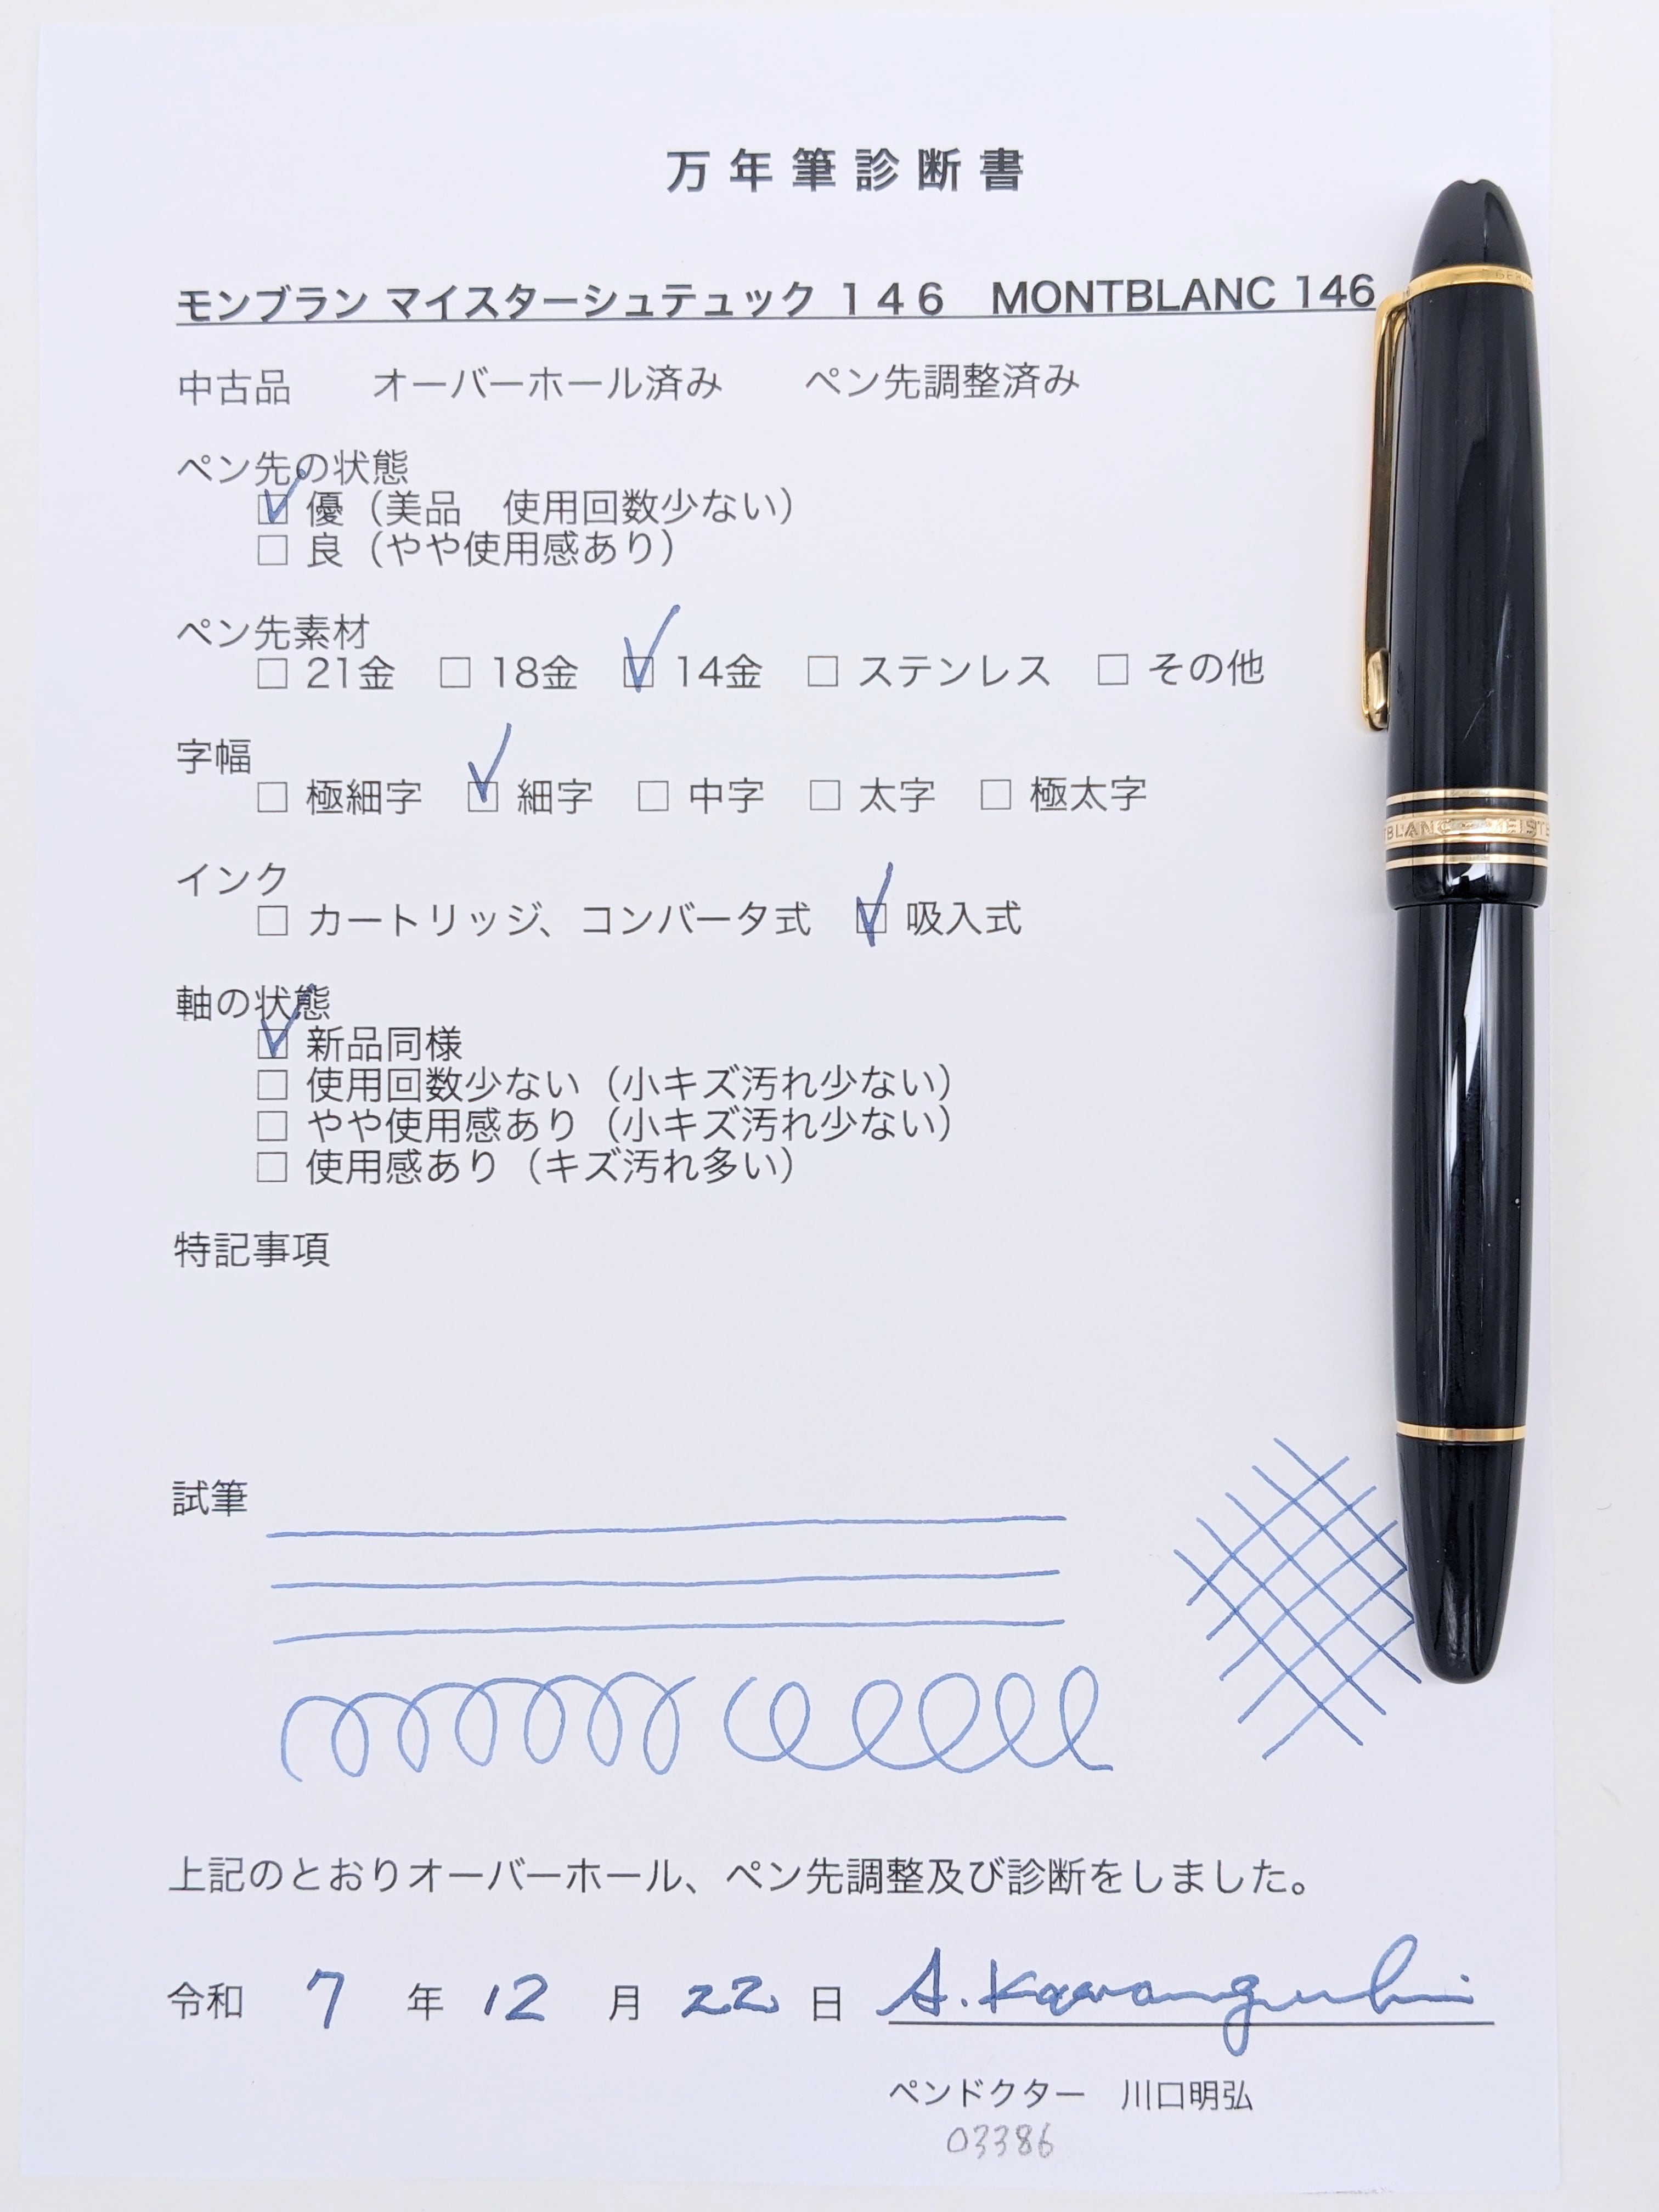 万年筆診断書
モンブラン マイスターシュテュック １４６　MONTBLANC 146
中古品　　オーバーホール済み　　ペン先調整済み
ペン先の状態
☑ 優（美品　使用回数少ない）
☐ 良（やや使用感あり）
ペン先素材
☐ 21金　☐ 18金　☑ 14金　☐ ステンレス　☐ その他
字幅
☐ 極細字　☑ 細字　☐ 中字　☐ 太字　☐ 極太字
インク
☐ カートリッジ、コンバータ式　☑ 吸入式
軸の状態
☑ 新品同様
☐ 使用回数少ない（小キズ汚れ少ない）
☐ やや使用感あり（小キズ汚れ少ない）
☐ 使用感あり（キズ汚れ多い）
特記事項
試筆
上記のとおりオーバーホール、ペン先調整及び診断をしました。
令和 7 年 12 月 22 日 A. Kawaguchi
ペンドクター　川口明弘
03386
GER
TBLANC - MEISTE